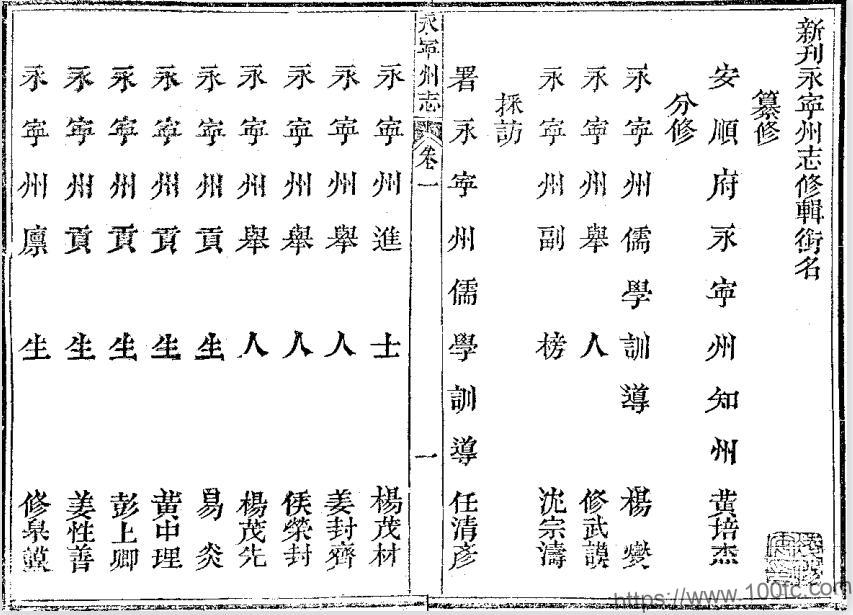 新刊永寧州志修輯銜名
纂修
安順府永寧州知州 黃培杰
分修
永寧州儒學訓導 楊燮
永寧州舉人 修武謨
永寧州副榜 沈宗濤
採訪
署永寧州儒學訓導 任清彥
永寧州志 卷一 一
永寧州進士 楊茂材
永寧州舉人 姜封齊
永寧州舉人 侯榮封
永寧州舉人 楊茂先
永寧州貢生 易炎
永寧州貢生 黃中理
永寧州貢生 彭上卿
永寧州貢生 姜性善
永寧州廩生 修梟謨
https://www.100fc.com